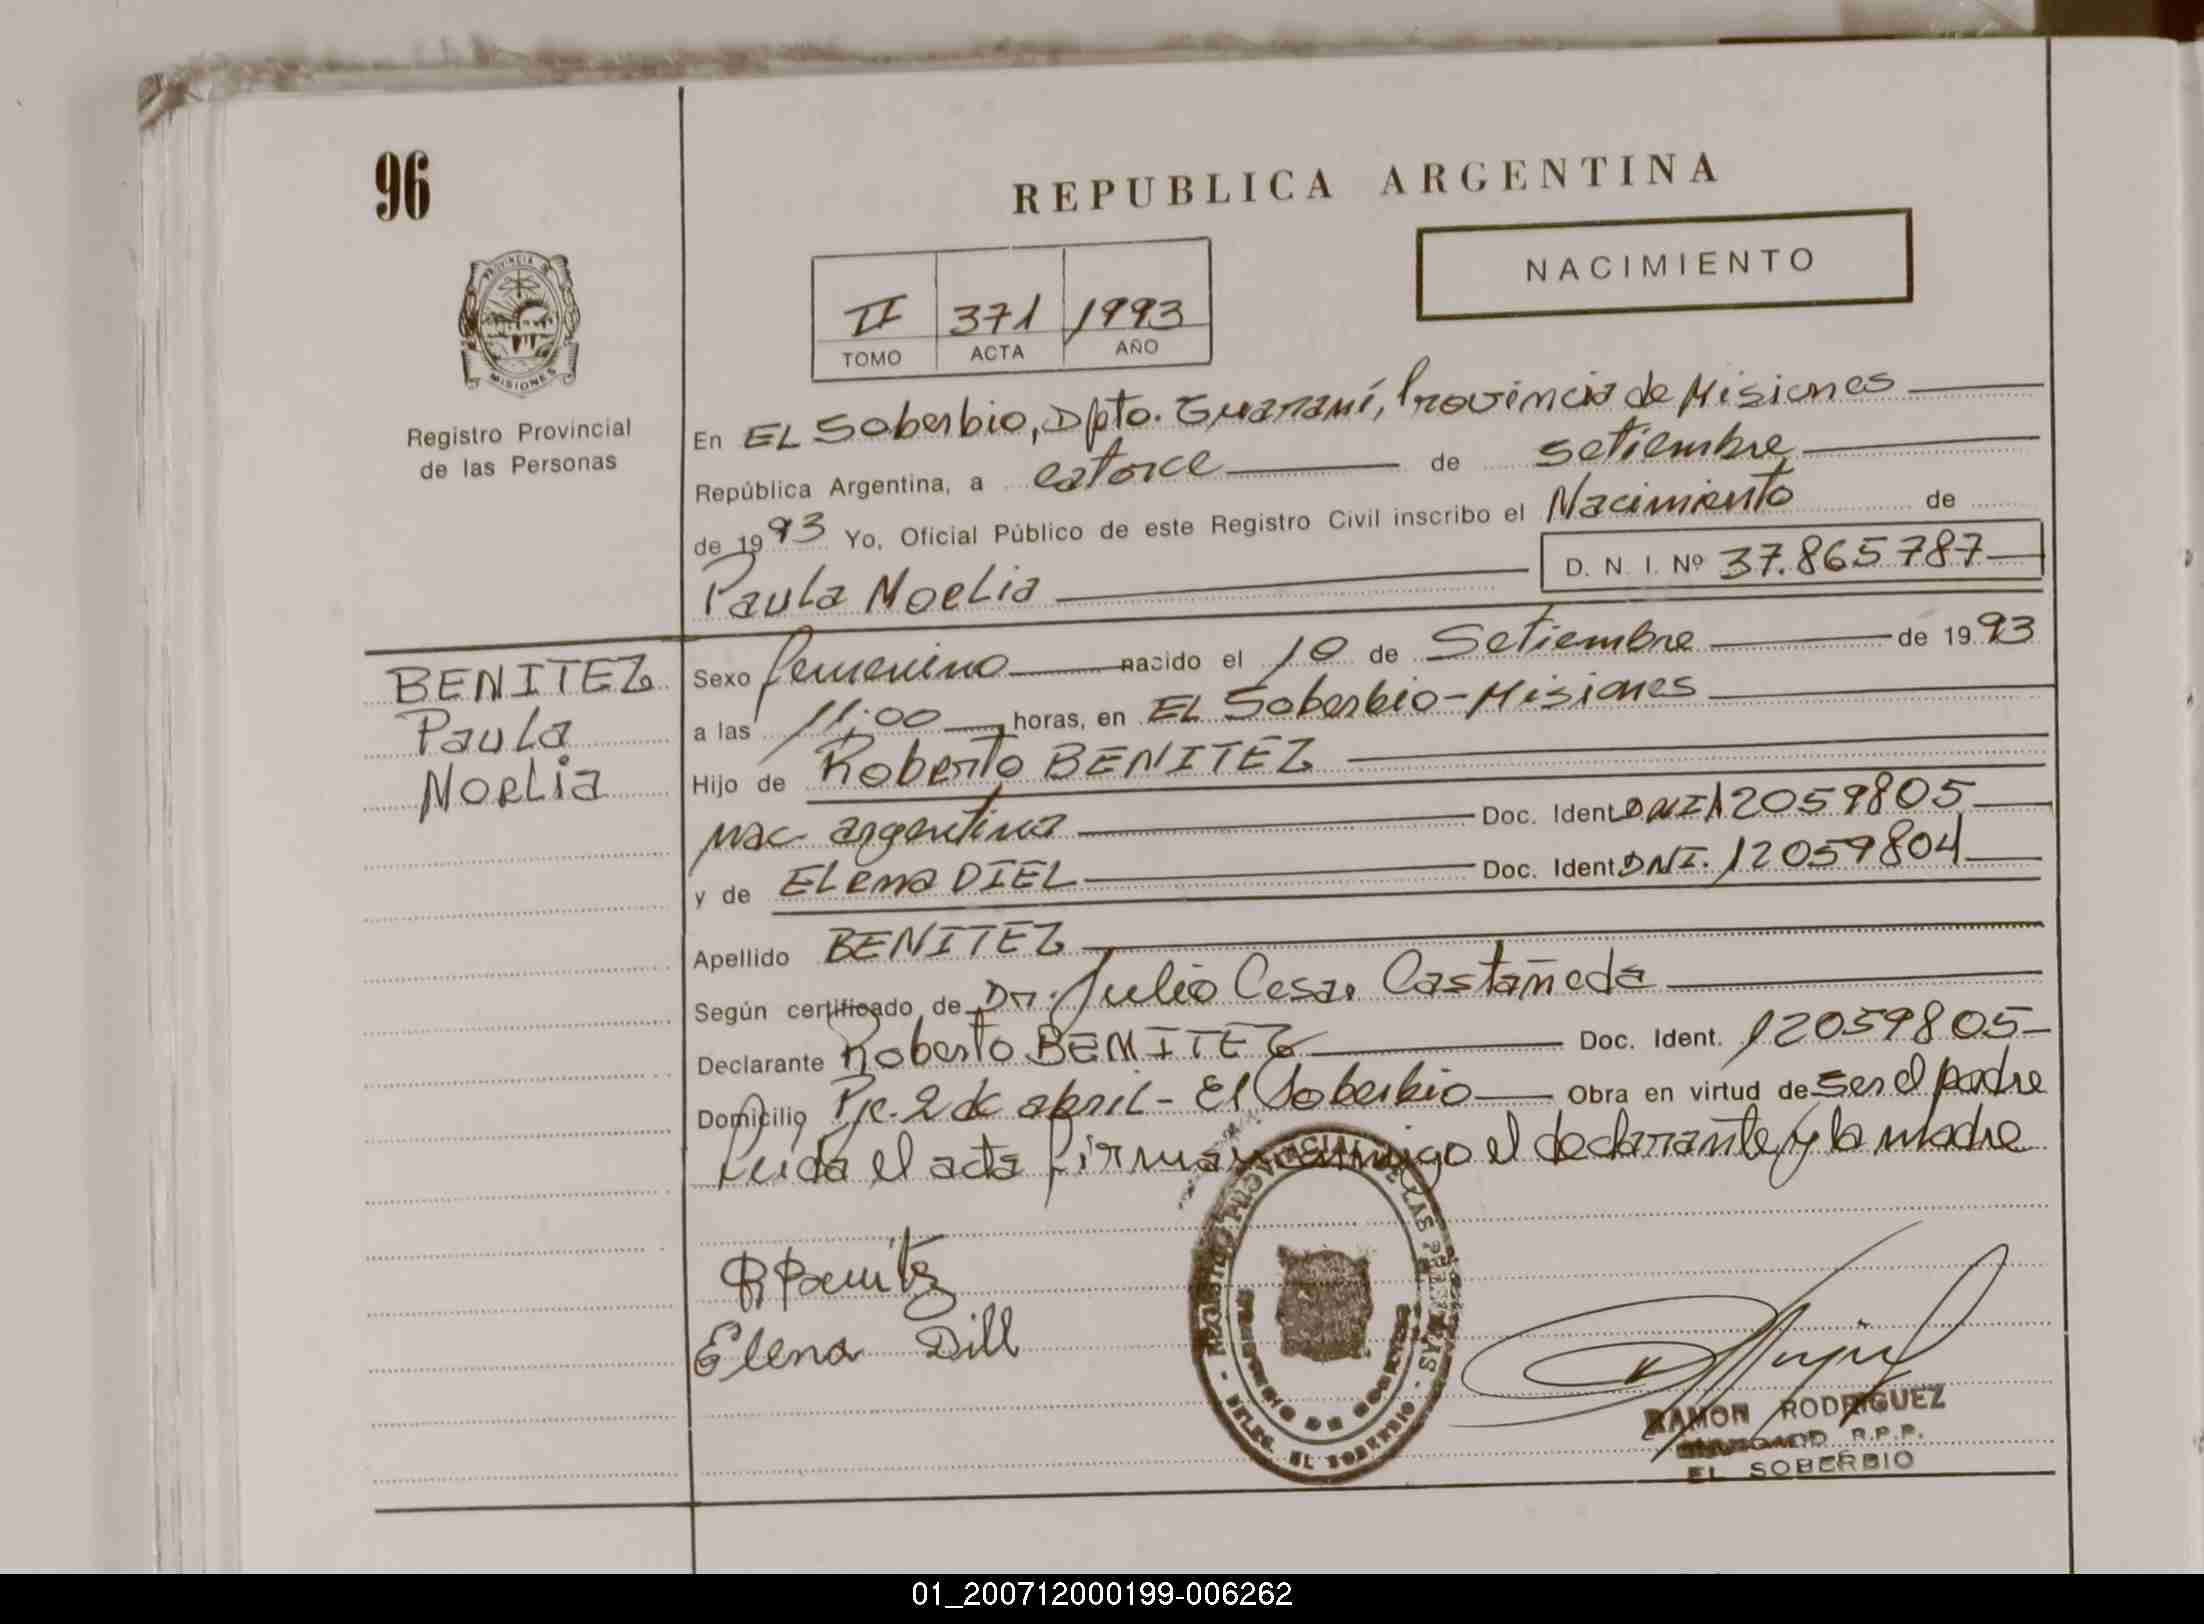 96
REPUBLICA ARGENTINA
NACIMIENTO
PROVINCIA DE MISIONES
II 371 1993
TOMO ACTA AÑO
Registro Provincial
de las Personas
En EL Soberbio, Dpto. Guaraní, Provincia de Misiones
República Argentina, a catorce de setiembre
de 1993 Yo, Oficial Público de este Registro Civil inscribo el Nacimiento de
Paula Noelia D. N. I. Nº 37.865787
BENITEZ
Paula
Noelia
Sexo femenino nacido el 10 de Setiembre de 1993
a las 11:00 horas, en EL Soberbio-Misiones
Hijo de Roberto BENITEZ
nac. argentina Doc. Ident. DNI 12059805
y de ELena DIEL Doc. Ident. DNI. 12059804
Apellido BENITEZ
Según certificado de Dr. Julio Cesar Castañeda
Declarante Roberto BENITEZ Doc. Ident. 12059805
Domicilio Pje. 2 de abril - El Soberbio Obra en virtud de ser el padre
Leida el acta firman conmigo el declarante y la madre
RBenitez
Elena Dill
REGISTRO PROVINCIAL DE LAS PERSONAS
DELEG. EL SOBERBIO
RAMON RODRIGUEZ
R.P.P.
EL SOBERBIO
01_200712000199-006262